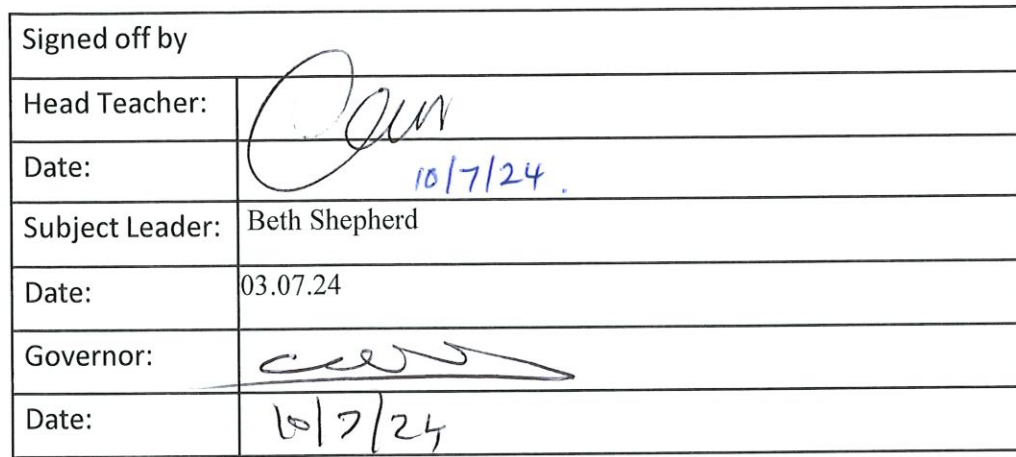 Signed off by
Head Teacher:
Date: 10/7/24.
Subject Leader: Beth Shepherd
Date: 03.07.24
Governor:
Date: 10/7/24